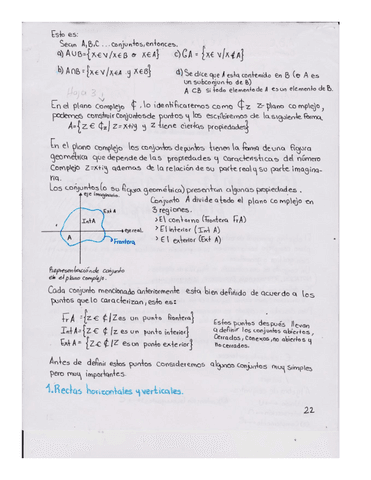 Esto es:
Sean A,B,C ... conjuntos, entonces.
a) A∪B={x∈V/x∈B o x∈A} c) ∁A = {x∈V/x∉A}
b) A∩B={x∈V/x∈A y x∈B} d) Se dice que A esta contenido en B (o A es
un subconjunto de B)
A⊂B si todo elemento de A es un elemento de B.
Hoja 3
En el plano complejo ₵, lo identificaremos como ₵z z-plano complejo,
podemos construir conjuntos de puntos y los escribiremos de la siguiente forma
A={z∈₵z/z=x+iy y z tiene ciertas propiedades}
En el plano complejo los conjuntos de puntos tienen la forma de una figura
geométrica que depende de las propiedades y características del número
Complejo z=x+iy ademas de la relación de su parte real y su parte imagina-
na.
Los conjuntos (o su figura geométrica) presentan algunas propiedades.
eje imaginario.
Conjunto A divide a todo el plano complejo en
3 regiones.
Ext A
Int A
> El contorno (Frontera FrA)
eje real.
> El interior (Int A)
A
Frontera
> El exterior (Ext A)
Representación de conjunto
en el plano complejo.
Cada conjunto mencionado anteriormente esta bien definido de acuerdo a los
puntos que lo caracterizan, esto es:
Fr A = {z∈ ₵/z es un punto frontera}
Int A = {z∈ ₵/z es un punto interior}
Ext A = {z∈ ₵/z es un punto exterior}
Estos puntos después llevan
a definir los conjuntos abiertos,
Cerrados, Conexos, no abiertos y
no cerrados.
Antes de definir estos puntos consideremos algunos conjuntos muy simples
pero muy importantes.
1. Rectas horizontales y verticales.
22